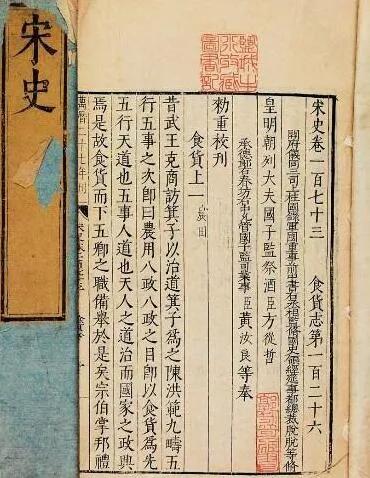 宋史
宋史卷一百七十三 食貨志第一百二十六
開府儀同三司上柱國錄軍國重事前中書右丞相監修國史領經筵事都總裁脫脫等修
皇明朝列大夫國子監祭酒臣方從哲
承德郎右春坊右中允管國子監司業事臣黃汝良等奉
勑重校刊
食貨上一 農田
昔武王克商訪箕子以治道箕子爲之陳洪範九疇五
行五事之次卽曰農用八政八政之目卽以食貨爲先
五行天道也五事人道也天人之道治而國家之政興
焉是故食貨而下五卿之職備舉於是矣宗伯掌邦禮
萬曆二十七年刊